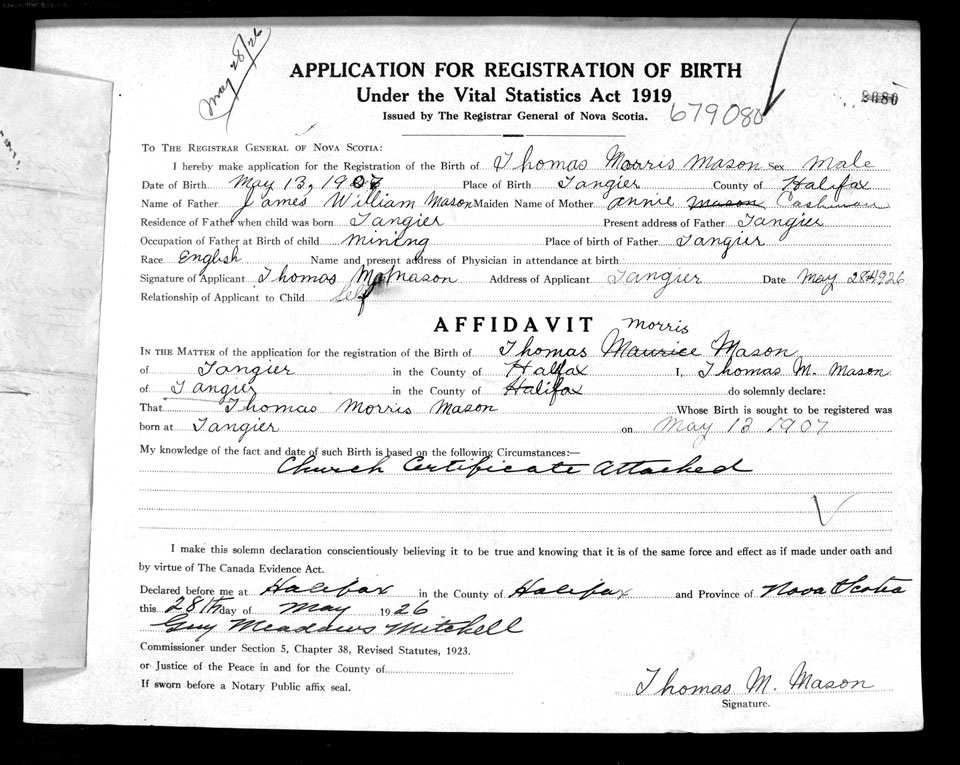 May 28/26
APPLICATION FOR REGISTRATION OF BIRTH
Under the Vital Statistics Act 1919
Issued by The Registrar General of Nova Scotia.
679080
8080
TO THE REGISTRAR GENERAL OF NOVA SCOTIA:
I hereby make application for the Registration of the Birth of Thomas Morris Mason Sex Male
Date of Birth May 13, 1907 Place of Birth Tangier County of Halifax
Name of Father James William Mason Maiden Name of Mother Annie Mason Cashman
Residence of Father when child was born Tangier Present address of Father Tangier
Occupation of Father at Birth of child mining Place of birth of Father Tangier
Race English Name and present address of Physician in attendance at birth
Signature of Applicant Thomas M. Mason Address of Applicant Tangier Date May 28th 1926
Relationship of Applicant to Child Self
AFFIDAVIT
Morris
IN THE MATTER of the application for the registration of the Birth of Thomas Maurice Mason
of Tangier in the County of Halfax I, Thomas M. Mason
of Tangier in the County of Halifax do solemnly declare:
That Thomas Morris Mason Whose Birth is sought to be registered was
born at Tangier on May 13 1907
My knowledge of the fact and date of such Birth is based on the following Circumstances:—
Church Certificate Attached
I make this solemn declaration conscientiously believing it to be true and knowing that it is of the same force and effect as if made under oath and
by virtue of The Canada Evidence Act.
Declared before me at Halifax in the County of Halifax and Province of Nova Scotia
this 28th day of May 1926
Guy Meadows Mitchell
Commissioner under Section 5, Chapter 38, Revised Statutes, 1923.
or Justice of the Peace in and for the County of
If sworn before a Notary Public affix seal.
Thomas M. Mason
Signature.